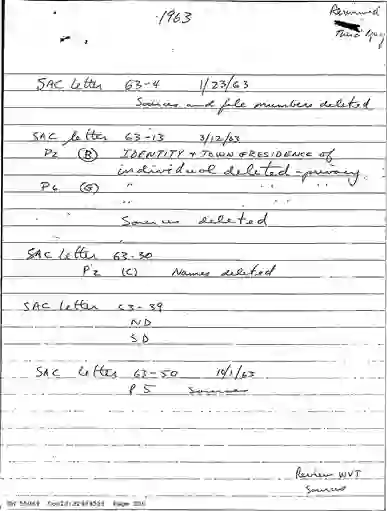 1963
Reviewed
SAC Letter 63-4 1/23/63
Sources and file numbers deleted
SAC letter 63-13 3/12/63
P2 (B) IDENTITY + TOWN of RESIDENCE of
individual deleted - privacy.
P6 (G) " " " "
" " "
Sources deleted
SAC Letter 63-30
P2 (C) Names deleted
SAC letter 63-39
ND
SD
SAC Letter 63-50 10/1/63
P5
Review WVT
Sources